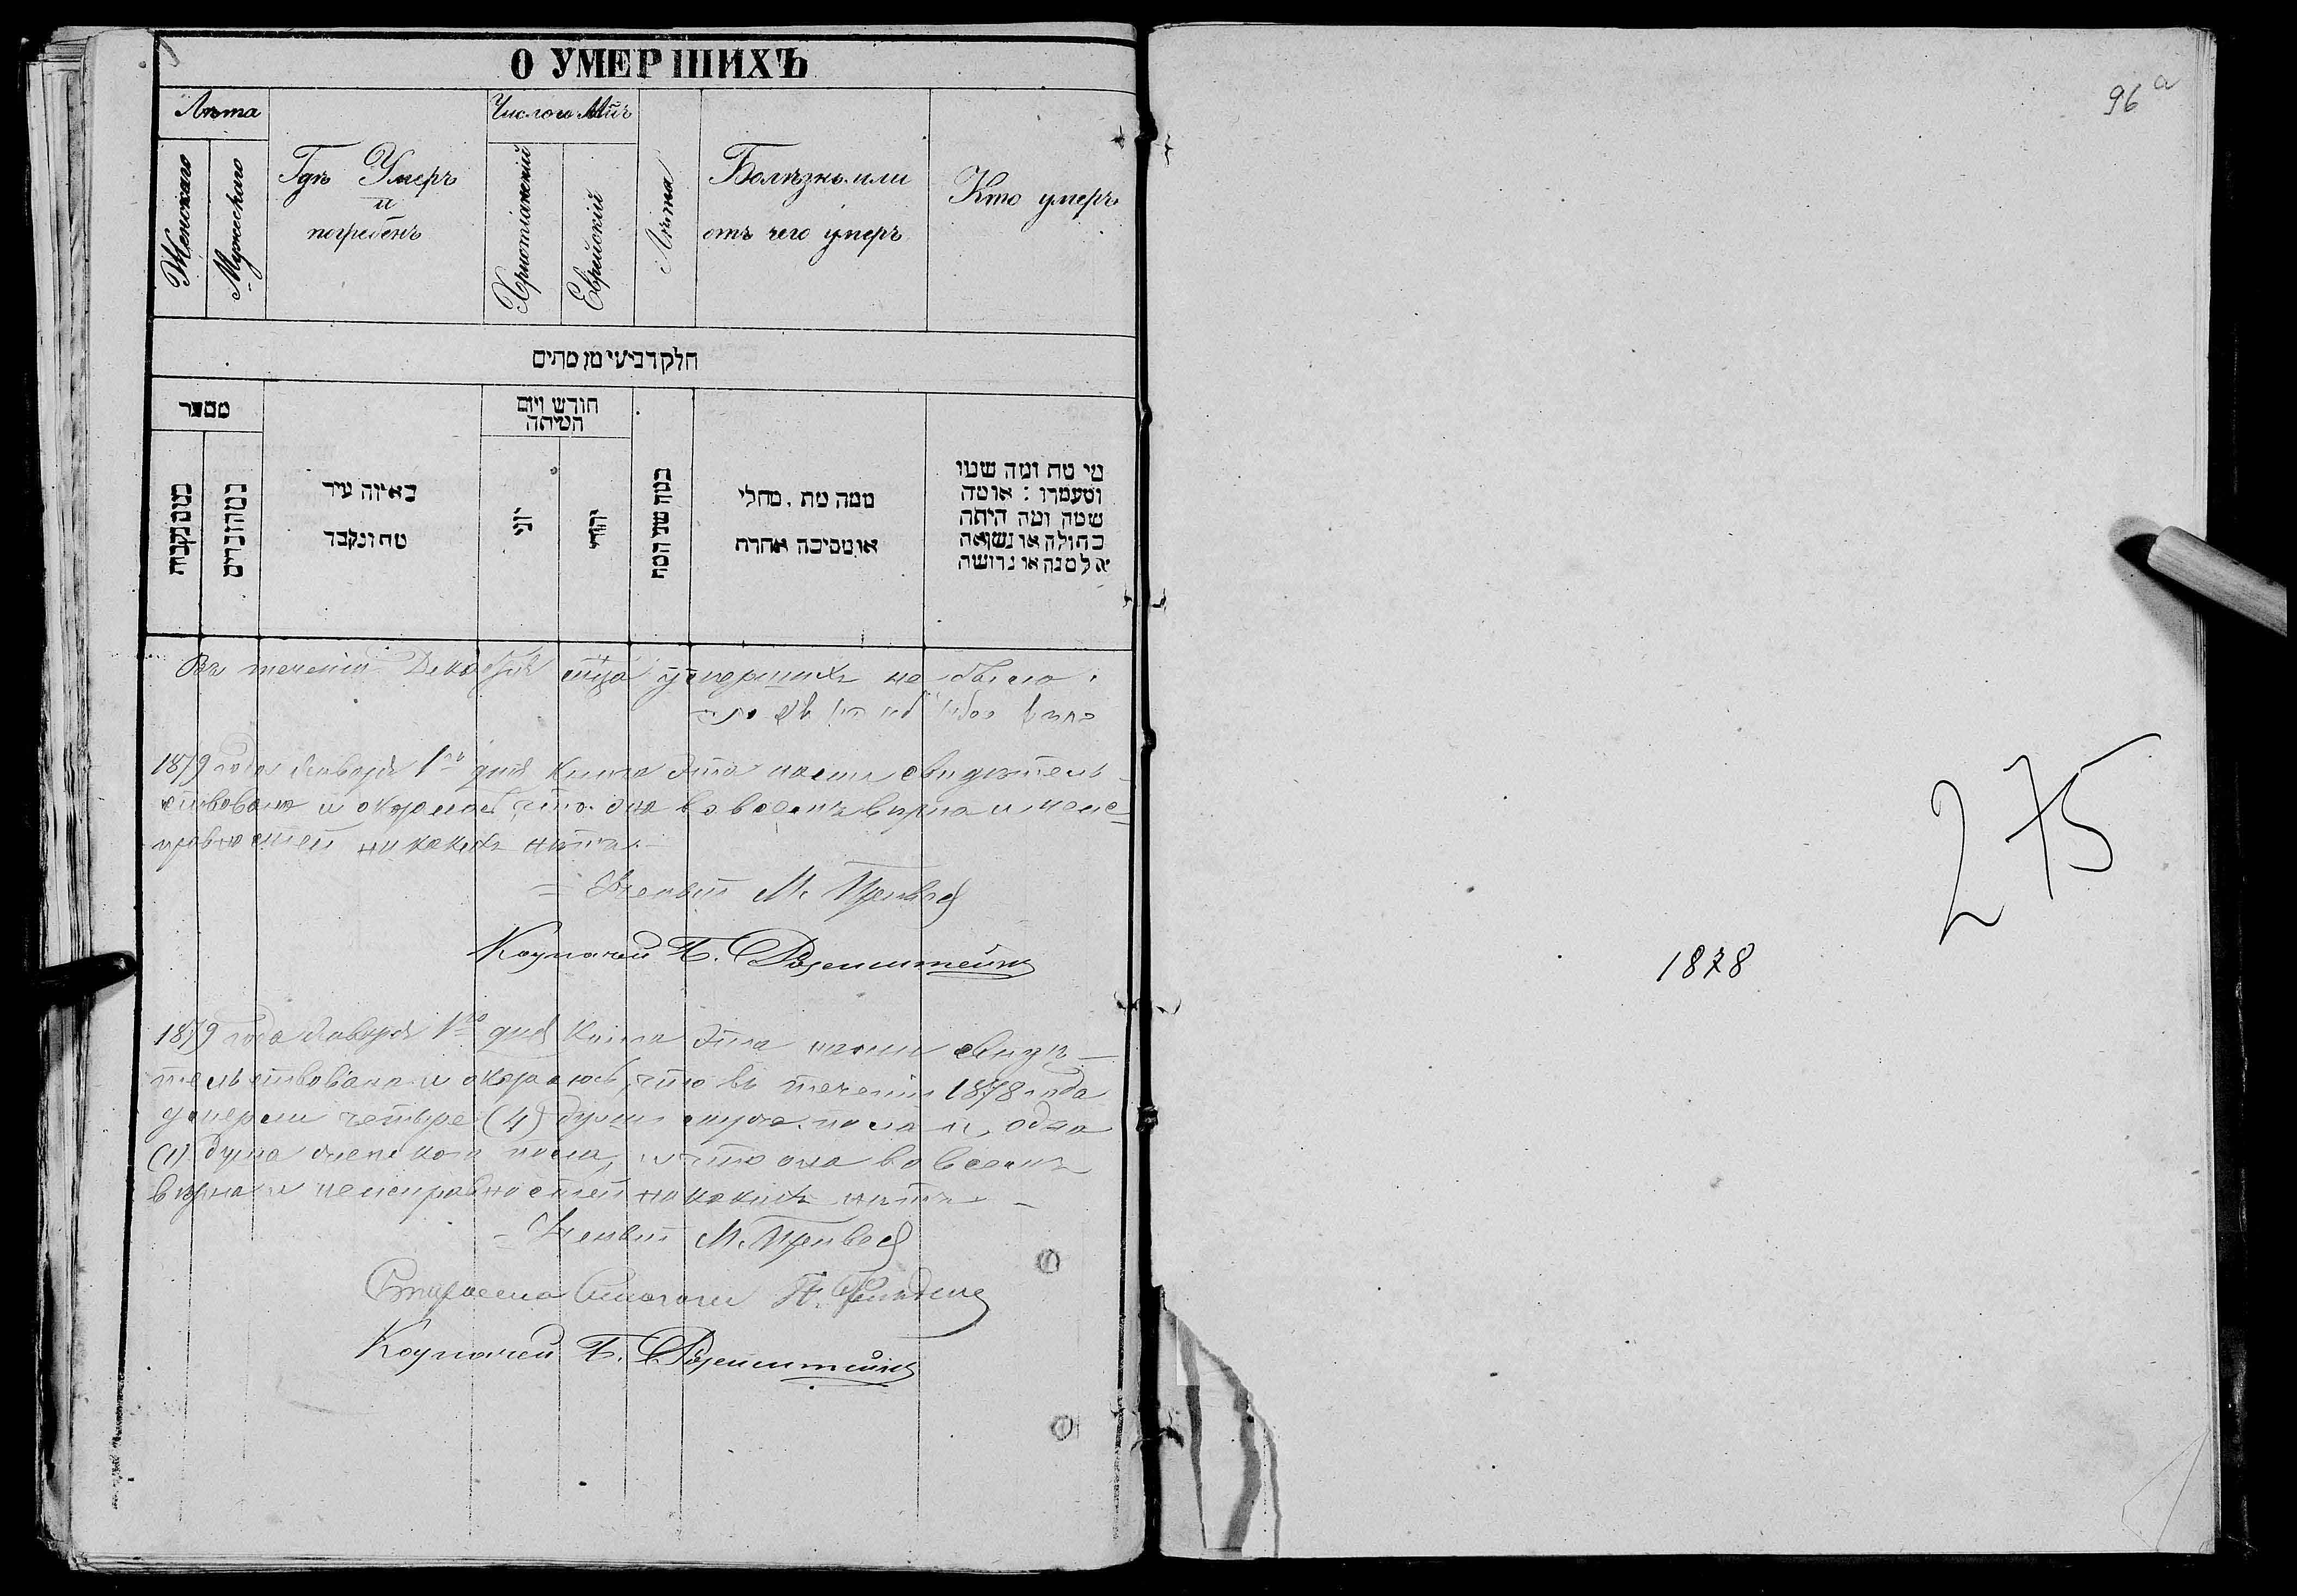 О УМЕРШИХЪ
Лѣта
Женскаго
Мужескаго
Гдѣ Умеръ
и
погребенъ
Число и Мѣ
Христіанскій
Еврейскій
Лѣта
Болѣзнь или
отъ чего умеръ
Кто умеръ
חלק רביעי מן מתים
מספר
ממין נקבות
ממין זכרים
באיזה עיר
מת ונקבר
חודש ויום
המיתה
יוני
יהודי
כמה שני המת
ממה מת, מחלי
או מסיבה אחרת
מי מת ומה שמו
ומעמדו : או מה
שמה ומה היתה
בתולה או נשואה
אלמנה או גרושה
Въ теченіи Декабря мца умершихъ не было.
1879 года Января 1го дня Книга эта нами свидѣтель-
ствована и оказалась, что она во всемъ вѣрна и неис-
правностей никакихъ нѣтъ.
Ученый М.
Казначей Б. Розенштейнъ
1879 года Января 1го дня Книга эта нами свидѣ-
тельствована и оказалось, что въ теченіи 1878 года
умерли четыре (4) души мужс. пола и одна
(1) душа женскаго пола, и что она во всемъ
вѣрна и неисправностей никакихъ нѣтъ.
Ученый М.
Староста Синагоги
Казначей Б. Розенштейнъ
96 а
275
1878